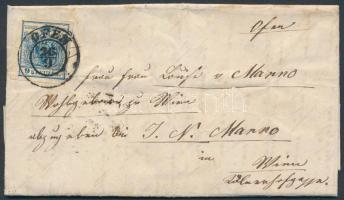 Ofen
OFEN
Frau Frau Louise v Manno
Wohlgeboren zu Wien
abzugeben bei J. N. Manno
in
Wien